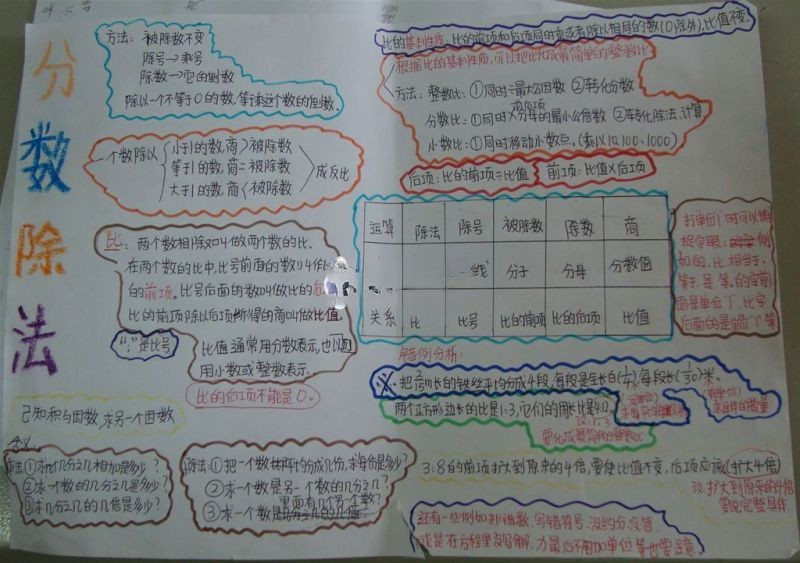 分数除法
方法: 被除数不变
除号→乘号
除数→它的倒数
除以一个不等于0的数,等于乘这个数的倒数.
一个数除以
小于1的数,商>被除数
等于1的数,商=被除数
大于1的数,商<被除数
成反比
比: 两个数相除又叫做两个数的比.
在两个数的比中,比号前面的数叫做
的前项。比号后面的数叫做比的后
比的前项除以后项所得的商叫做比值.
":"是比号
比值通常用分数表示,也可以
用小数或整数表示.
比的后项不能是0.
已知积与因数,求另一个因数
含义
乘法:①求几个几分之几相加是多少?
②求一个数的几分之几是多少?
③求几分之几的几倍是多少?
除法:①把一个数平均分成几份,求每份是多少?
②求一个数是另一个数的几分之几?
③求一个数里面有几个另一个数?
比的基本性质:比的前项和后项同时乘或者除以相同的数(0除外),比值不变.
根据比的基本性质,可以把比化成最简单的整数比
方法: 整数比: ①同时÷最大公因数 ②转化分数
分数比: ①同时×分母的最小公倍数 ②转化除法,计算
小数比: ①同时移动小数点。(乘以10、100、1000)
后项:比的前项÷比值
前项:比值×后项
运算 除法 除号 被除数 除数 商
线 分子 分母 分数值
关系 比 比号 比的前项 比的后项 比值
找单位1时可以
如的、比、相当于、
等于、是、等。的字前
面是单位"1",比字
后面的是单位"1"等
错例分析:
米长的铁丝平均分成4段,每段是全长的(1/4),每段长(1/30)米.
两个正方形边长的比是1:3,它们的周长比是4:12.
改:1:3
要化成最简单的整数比
3:8的前项扩大到原来的4倍,要使比值不变,后项应该(扩大4倍)
改:扩大到原来的4倍
要说完整具体
还有一些例如抄错数、写错符号、没约分、
或是在方程里没写解、最后不用加单位等也要注意.